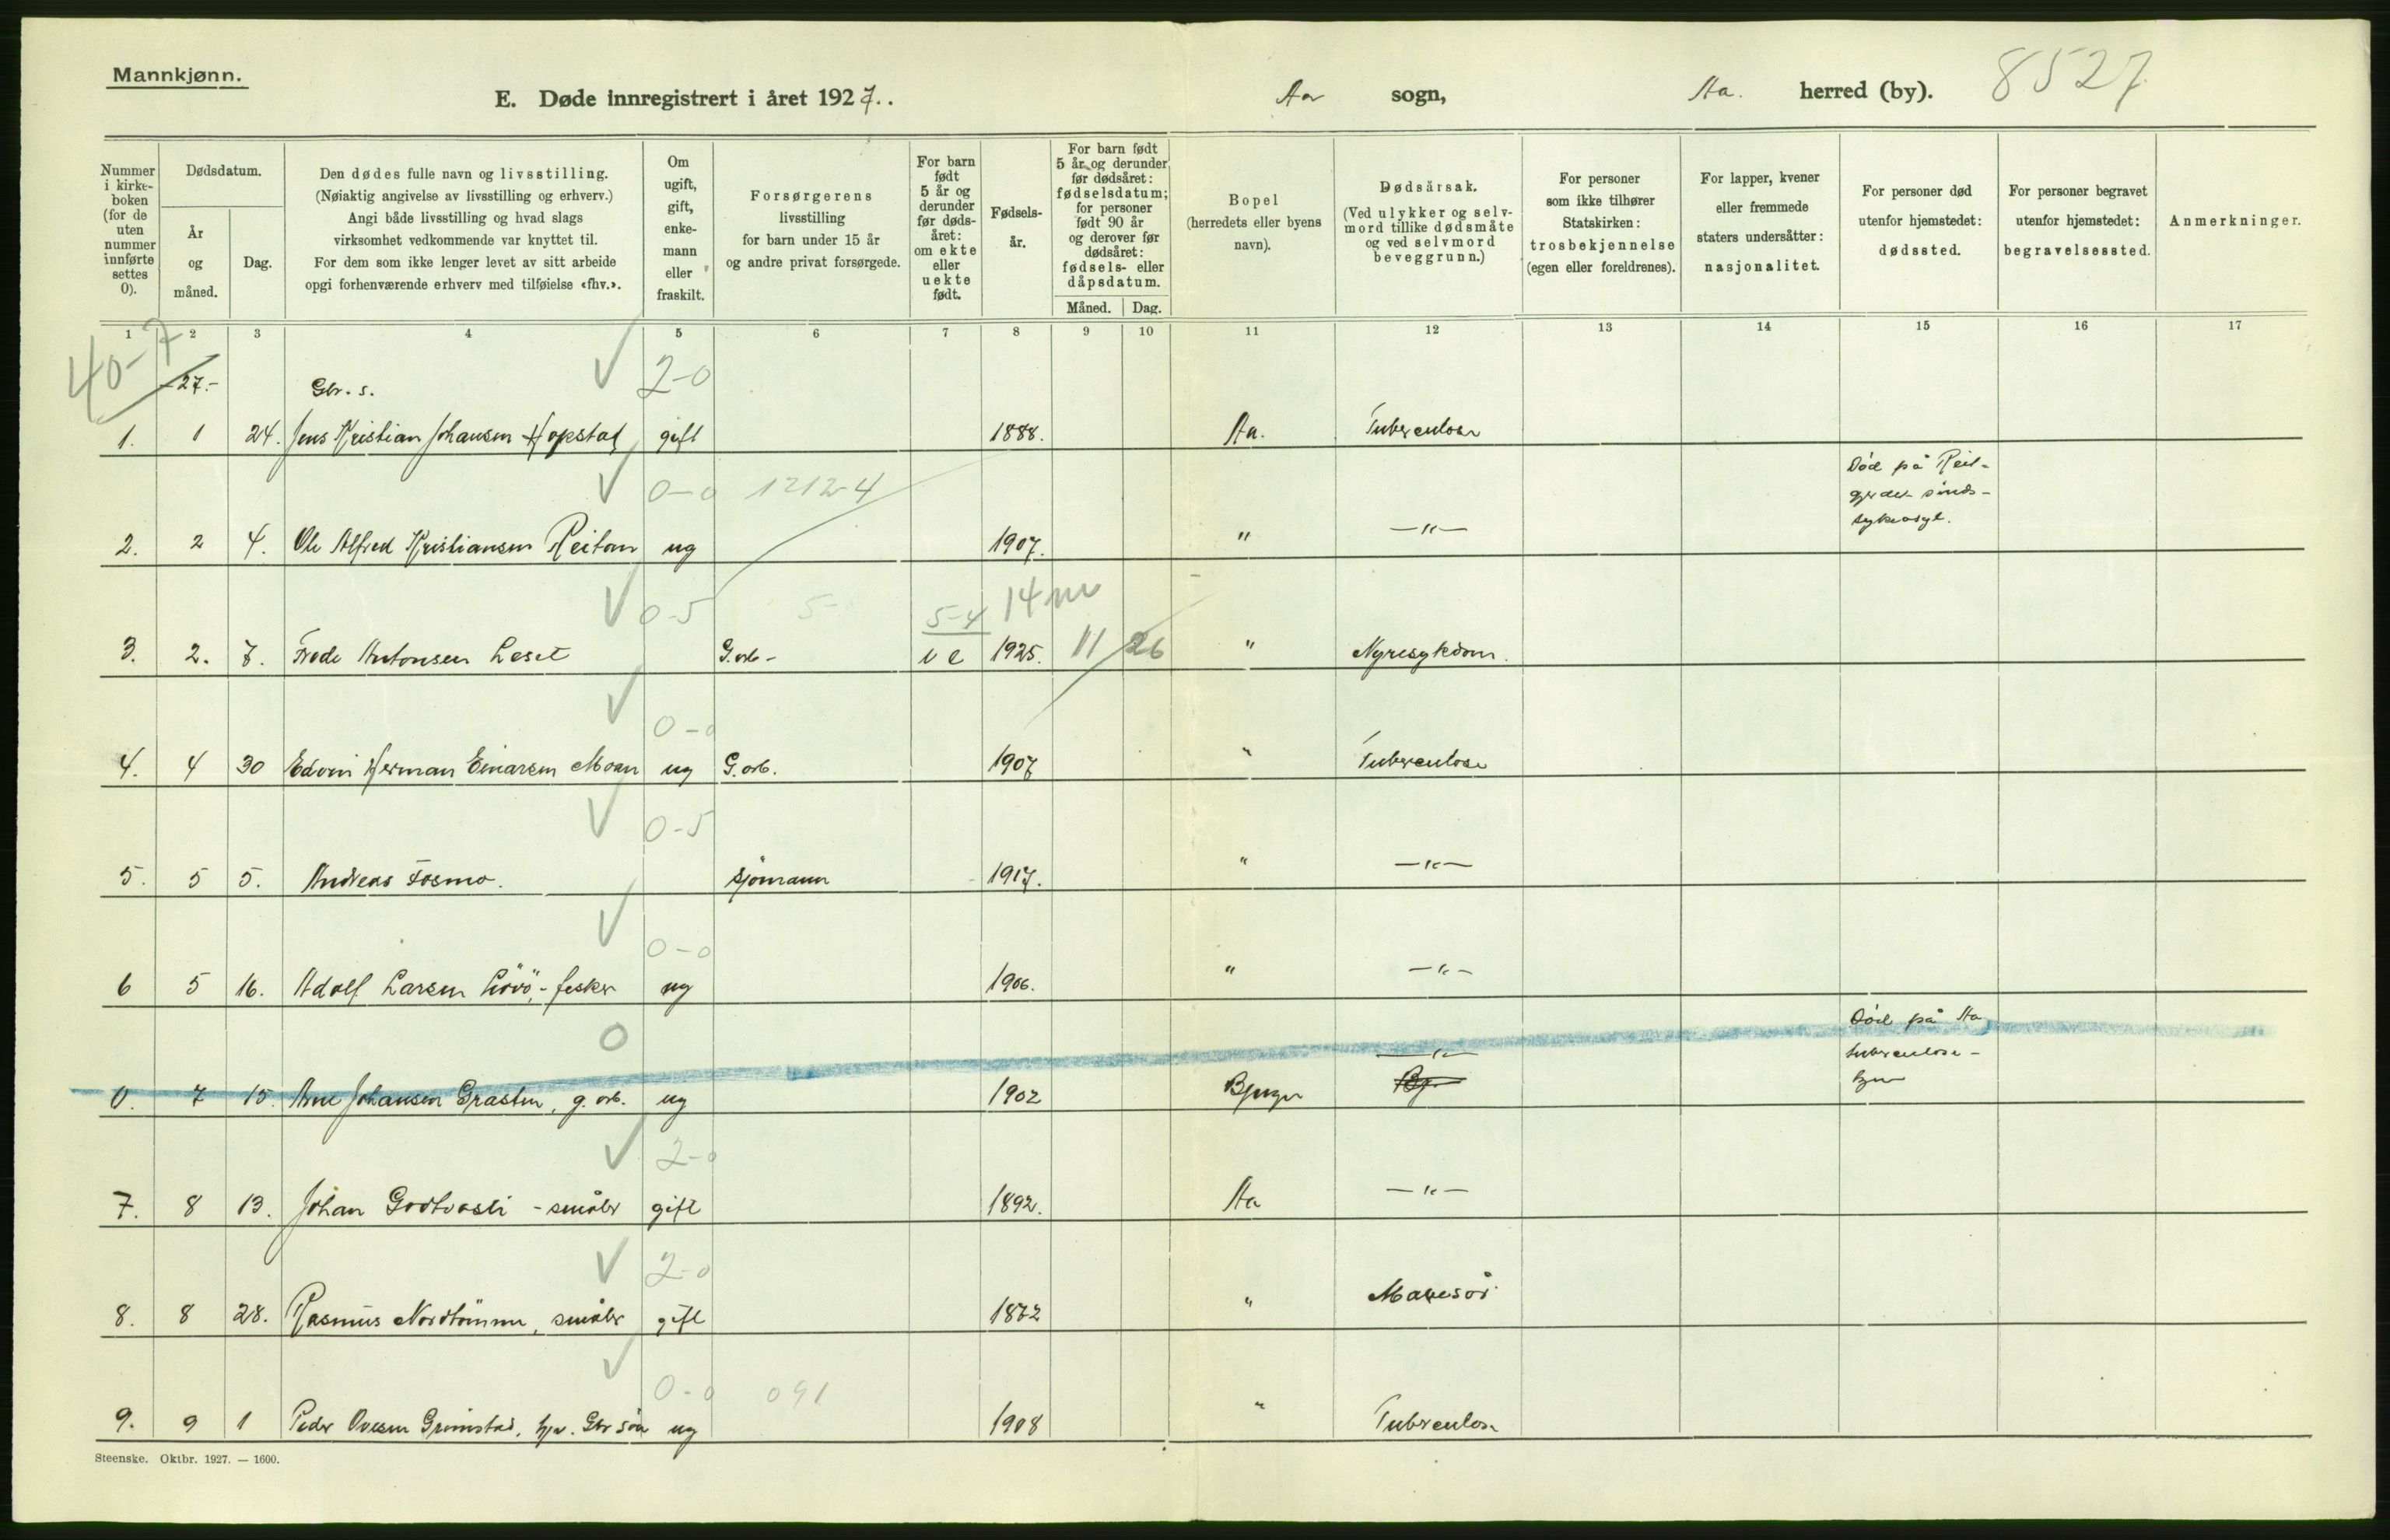 Mannkjønn.
E. Døde innregistrert i året 1927. Aa sogn, Aa. herred (by). 8527
Nummer i kirke- boken (for de uten nummer innførte settes 0).
Dødsdatum.
År og måned.
Dag.
Den dødes fulle navn og livsstilling.
(Nøiaktig angivelse av livsstilling og erhverv.)
Angi både livsstilling og hvad slags
virksomhet vedkommende var knyttet til.
For dem som ikke lenger levet av sitt arbeide
opgi forhenværende erhverv med tilføielse «fhv.».
Om ugift, gift, enke- mann eller fraskilt.
Forsørgerens
livsstilling
for barn under 15 år
og andre privat forsørgede.
For barn født 5 år og derunder før døds- året: om ekte eller uekte født.
Fødsels- år.
For barn født 5 år og derunder før dødsåret: fødselsdatum; for personer født 90 år og derover før dødsåret: fødsels- eller dåpsdatum.
Måned. Dag.
Bopel
(herredets eller byens
navn).
Dødsårsak.
(Ved ulykker og selv-
mord tillike dødsmåte
og ved selvmord
beveggrunn.)
For personer
som ikke tilhører
Statskirken:
trosbekjennelse
(egen eller foreldrenes).
For lapper, kvener
eller fremmede
staters undersåtter:
nasjonalitet.
For personer død
utenfor hjemstedet:
dødssted.
For personer begravet
utenfor hjemstedet:
begravelsessted.
Anmerkninger.
1 2 3 4 5 6 7 8 9 10 11 12 13 14 15 16 17
40-7
-27.- Gbr. s. 2-0
1. 1 24. Jens Kristian Johansen Hopstad gift 1888. Aa. Tuberculose
0-0 12124
2. 2 4. Ole Alfred Kristiansen Reitan ug 1907. " —"— Død på Reit-
gjerdet sinds-
sykeasyl.
0-5 5- 5-4 14 m
3. 2. 7. Frode Antonsen Leset G.arb- u e 1925. 11 26 " Nyresykdom.
0-0
4. 4 30 Edvin Herman Einarsen Moan ug G. arb. 1907 " Tuberculose
0-5
5. 5 5. Andreas Fosmo. sjømann 1917. " —"—
0-0
6 5 16. Adolf Larsen Lövö,- fisker ug 1906. " —"—
0
0. 7 15. Arne Johansen Grasten, g. arb. ug 1902 Bjugn —"— Død på Aa
tuberculose-
hjem
2-0
7. 8 13. Johan Godtvasli - småbr gift 1892. Aa —"—
2-0
8. 8 28. Rasmus Nordtömme, småbr gift 1872 " Mavesår
0-0 091
9. 9 1 Peder Ovesen Grimstad, hjv. Gbr sön ug 1908 " Tuberculose
Steenske. Oktbr. 1927. — 1600.